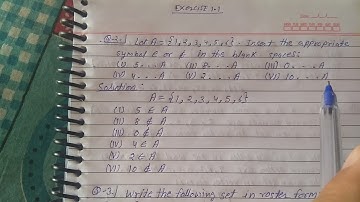 EXERCISE 1.1
Q-2. Let A = {1,2,3,4,5,6}. Insert the appropriate
symbol ∈ or ∉ in the blank spaces:
(I) 5...A (II) 8...A (III) 0...A
(IV) 4...A (V) 2...A (VI) 10...A
Solution:
A = {1,2,3,4,5,6}
(I) 5 ∈ A
(II) 8 ∉ A
(III) 0 ∉ A
(IV) 4 ∈ A
(V) 2 ∈ A
(VI) 10 ∉ A
Q-3. Write the following set in roster form